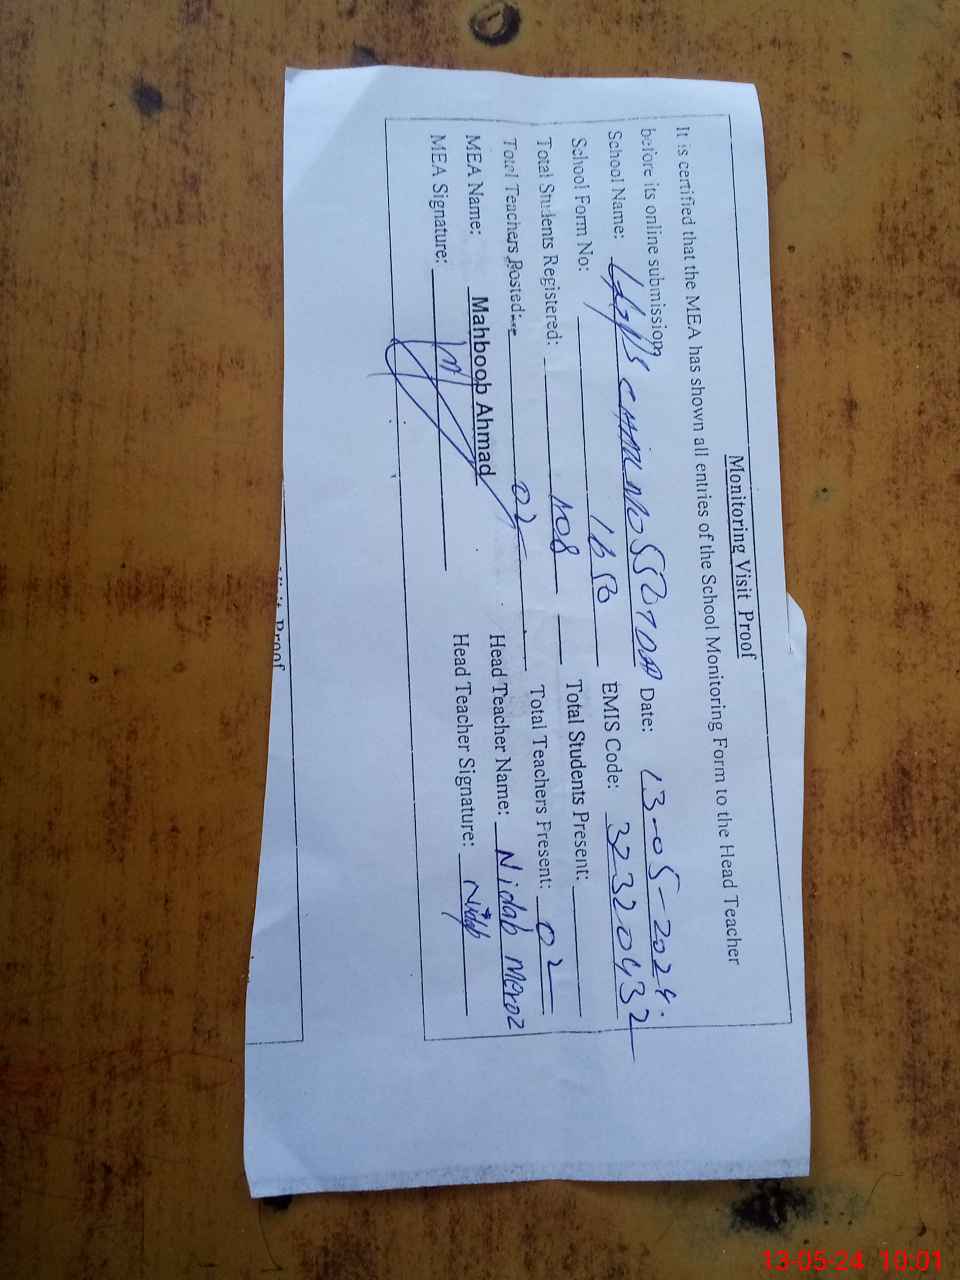 Monitoring Visit Proof
It is certified that the MEA has shown all entries of the School Monitoring Form to the Head Teacher
before its online submission
School Name: Date: 13-05-2024.
School Form No: 1650 EMIS Code: 32320432
Total Students Registered: 108 Total Students Present:
Total Teachers Posted: 02 Total Teachers Present: 02
MEA Name: Mahboob Ahmad Head Teacher Name: Nidab Meroz
MEA Signature: Head Teacher Signature: Nidab
Visit Proof
13-05-24 10:01